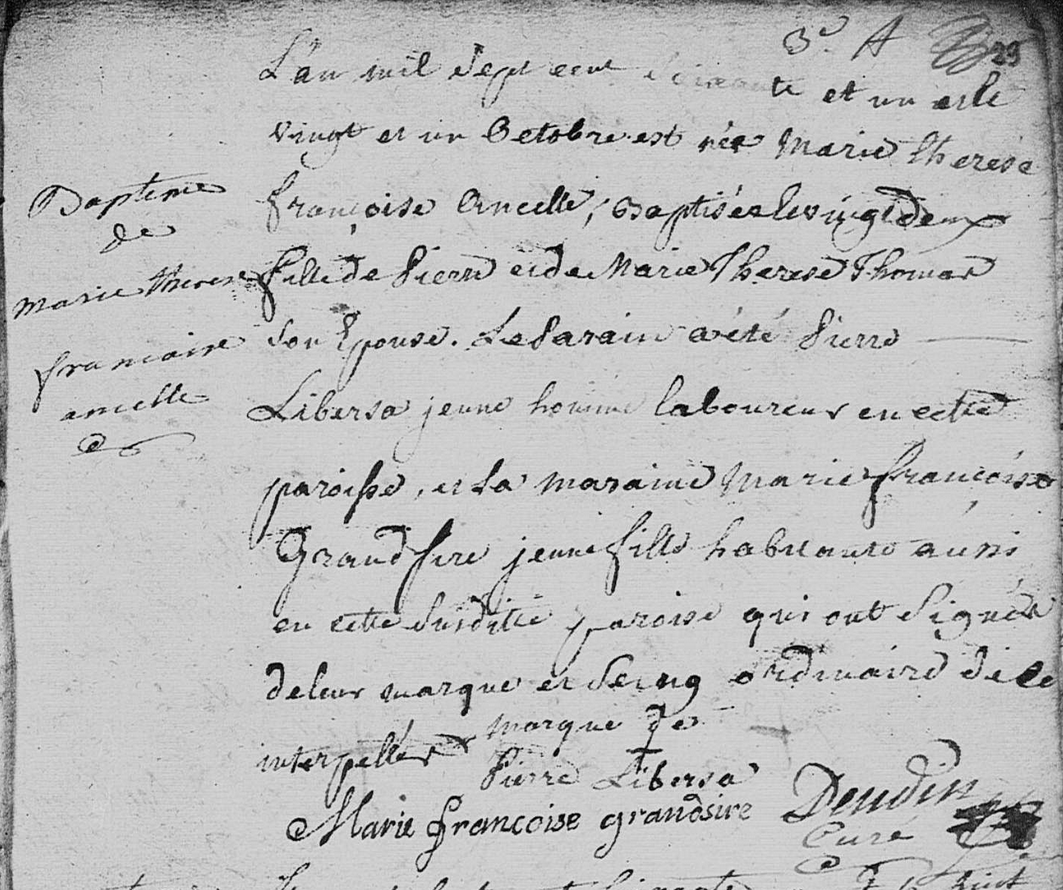 3e A 29
L'an mil sept cent soixante et un et le
vingt et un Octobre est née Marie therese
françoise Ancelle, Baptisée le vingt deux
fille de Pierre et de Marie Therese Thomas
son Epouse. Le Parain a été Pierre
Libersa jeune homme laboureur en cette
paroisse, et la maraine Marie françoise
Grandsire jeune fille habitante aussi
en cette susditte paroise qui ont signés
de leur marque et seing ordinaire de ce
interpellés
marque de
Pierre Libersa
Marie françoise grandsire
Deudin
Curé
Bapteme
de
marie therese
francoise
ancelle